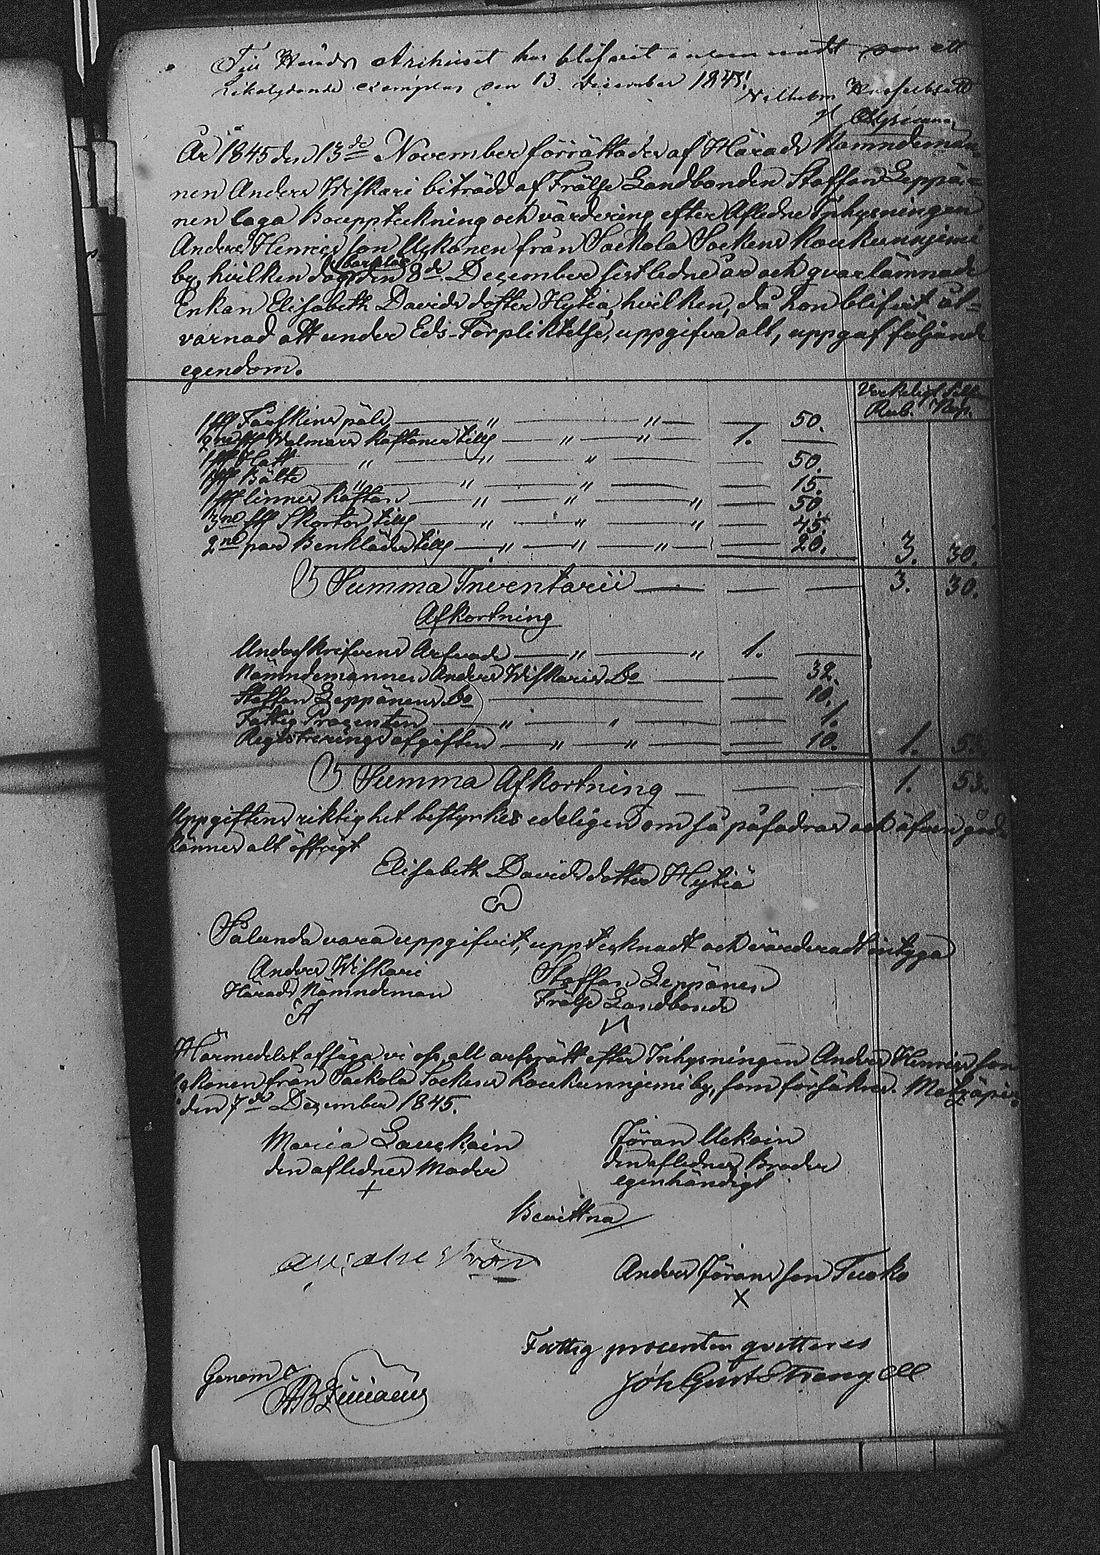 Till Härads Arkivet har blifvit inlemnadt ett
Likalydande exemplar den 13 December 1845.
Wilhelm
År 1845 den 13de November förrättades af Härads Nämndeman-
nen Anders Wiskari biträdd af Frälse Landbonden Staffan Leppä-
nen laga Bouppteckning och värdering efter Aflidne Inhysningen
Anders Henricsson Uskonen från Sackola Sockens Koukunniemi
by, hvilken dog den 8de December sistledne år och qvarlämnade
Enkan Elisabeth Davidsdotter Hytiä, hvilken, då hon blifvit åt-
varnad att under Eds-Förpliktelse, uppgifva alt, uppgaf följande
egendom.
Verkeligt Silfver
Rub. Kop.
1 st Fårskins päls — " — " — 50.
2ne st Walmars Kaftaner tills — " — " — 1. —
1 st Hatt — " — " — " — 50.
1 st Bälte — " — " — " — 15.
1 st linnes Kaftan — " — " — " — 50.
3ne st Skortor tills — " — " — " — 45.
2ne par Benkläder tills — " — " — " — 20. 3. 30.
Summa Inventarii — — — 3. 30.
Afkortning
Underskrifvens Arfvode — " — " — 1. —
Nämndemannen Anders Wiskaris Do — — 32.
Staffan Leppänens Do — — 10.
Fattig Procenten — " — " — — 1.
Registrerings afgiften — " — " — — 10. 1. 53.
Summa Afkortning — — — 1. 53.
Uppgiftens riktighet bestyrkes edeligen om så påfodras och äfven god-
känner alt öfrigt
Elisabeth Davidsdotter Hytiä
Sålunda vara uppgifvit, upptecknadt och värderadt intyga
Anders Wiskari
Härads Nämndeman
Staffan Leppänen
Frälse Landbonde
Härmedelst afsäga vi oss all arfsrätt efter Inhysningen Anders Henricsson
Uskonen från Sackola Sockens Koukunniemi by, som försäkras.
den 7de December 1845.
Maria Lauskain
den aflednes Moder
+
Jöran Uskain
den aflednes Broder
egenhändigt
Bevittna
Anders Jöransson Tuoko
X
Fattig procenten qvitteras
Joh Gust Strengell
Genom